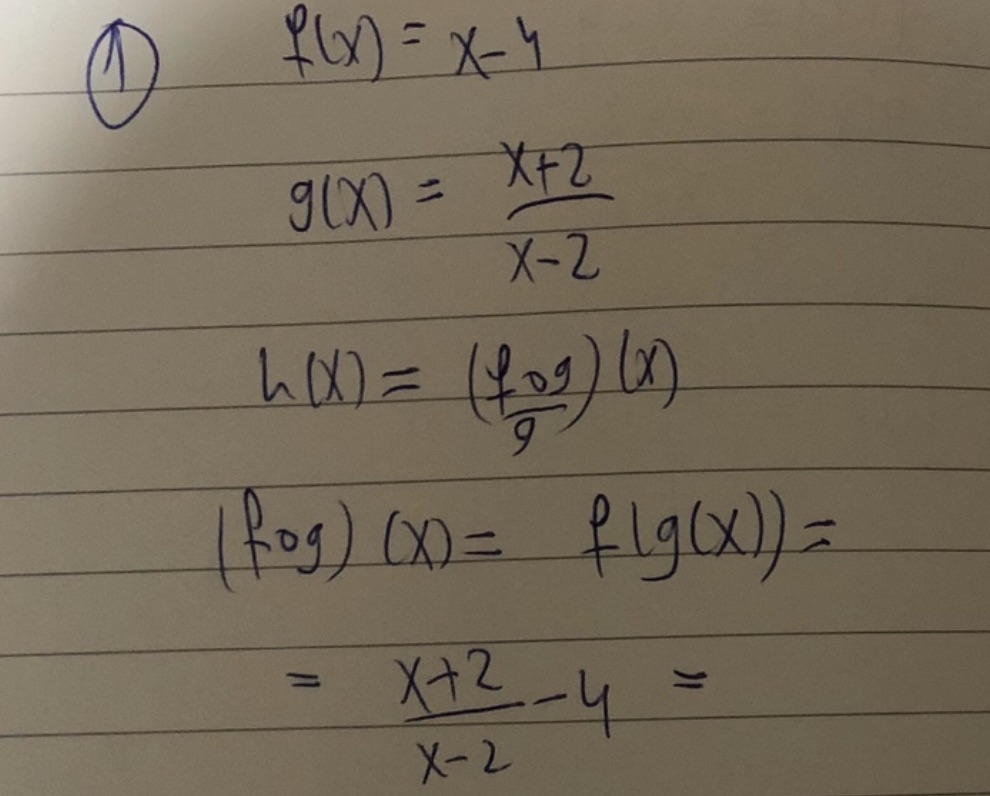 ① f(x) = x-4
g(x) = \frac{x+2}{x-2}
h(x) = (\frac{f∘g}{g})(x)
(f∘g)(x) = f(g(x)) =
= \frac{x+2}{x-2} - 4 =